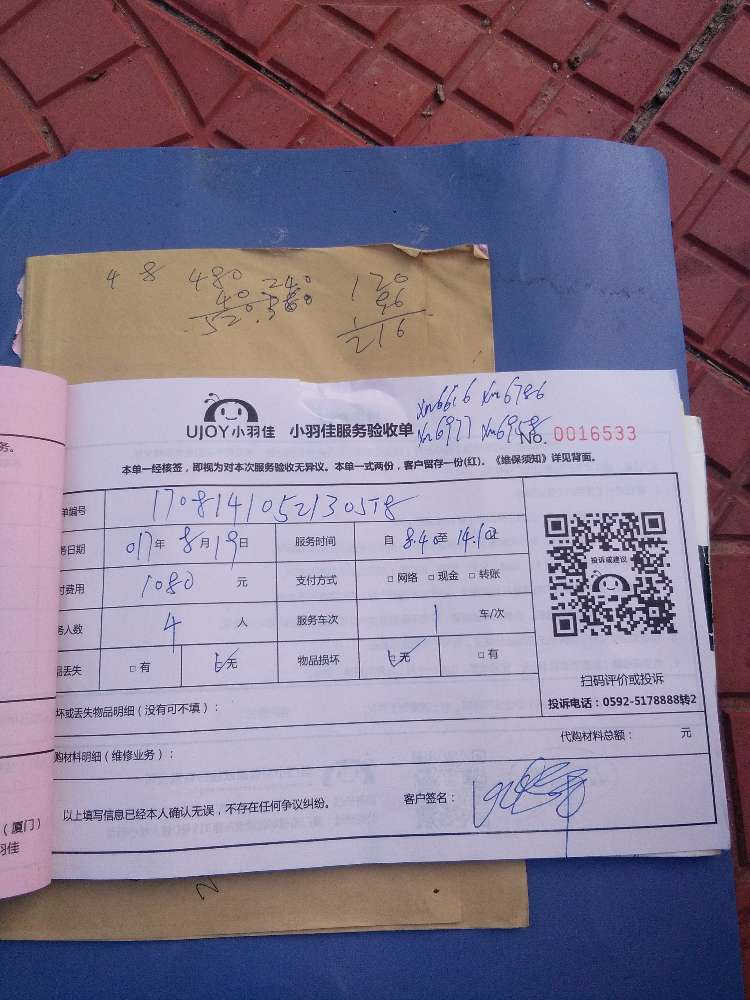 4 8 480 240 120
40 360 96
520 216
UJOY小羽佳 小羽佳服务验收单 xm6616 xm6786
xm6977 xm6958
No. 0016533
本单一经核签，即视为对本次服务验收无异议。本单一式两份，客户留存一份(红)。《维保须知》详见背面。
单编号 170814105213058
务日期 017年 8月19日 服务时间 自 8.40至 14.10
付费用 1080 元 支付方式 □ 网络 □ 现金 □ 转账
务人数 4 人 服务车次 1 车/次
品丢失 □ 有 □ 无 物品损坏 □ 无 □ 有
投诉或建议
扫码评价或投诉
投诉电话：0592-5178888转2
坏或丢失物品明细（没有可不填）：
购材料明细（维修业务）： 代购材料总额： 元
以上填写信息已经本人确认无误，不存在任何争议纠纷。 客户签名：
务。
（厦门）
羽佳